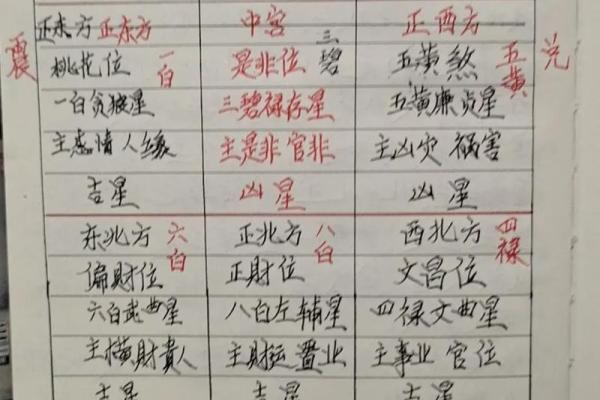 正东方 正东方 中宫 正西方
震 桃花位 一白 是非位 三碧 五黄煞 五黄 兑
一白贪狼星 三碧禄存星 五黄廉贞星
主感情人缘 主是非官非 主凶灾祸害
吉星 凶星 凶星
东北方 六白 正北方 八白 西北方 四禄
偏财位 正财位 文昌位
六白武曲星 八白左辅星 四禄文曲星
主横财贵人 主财运置业 主事业官位
吉星 吉星 吉星